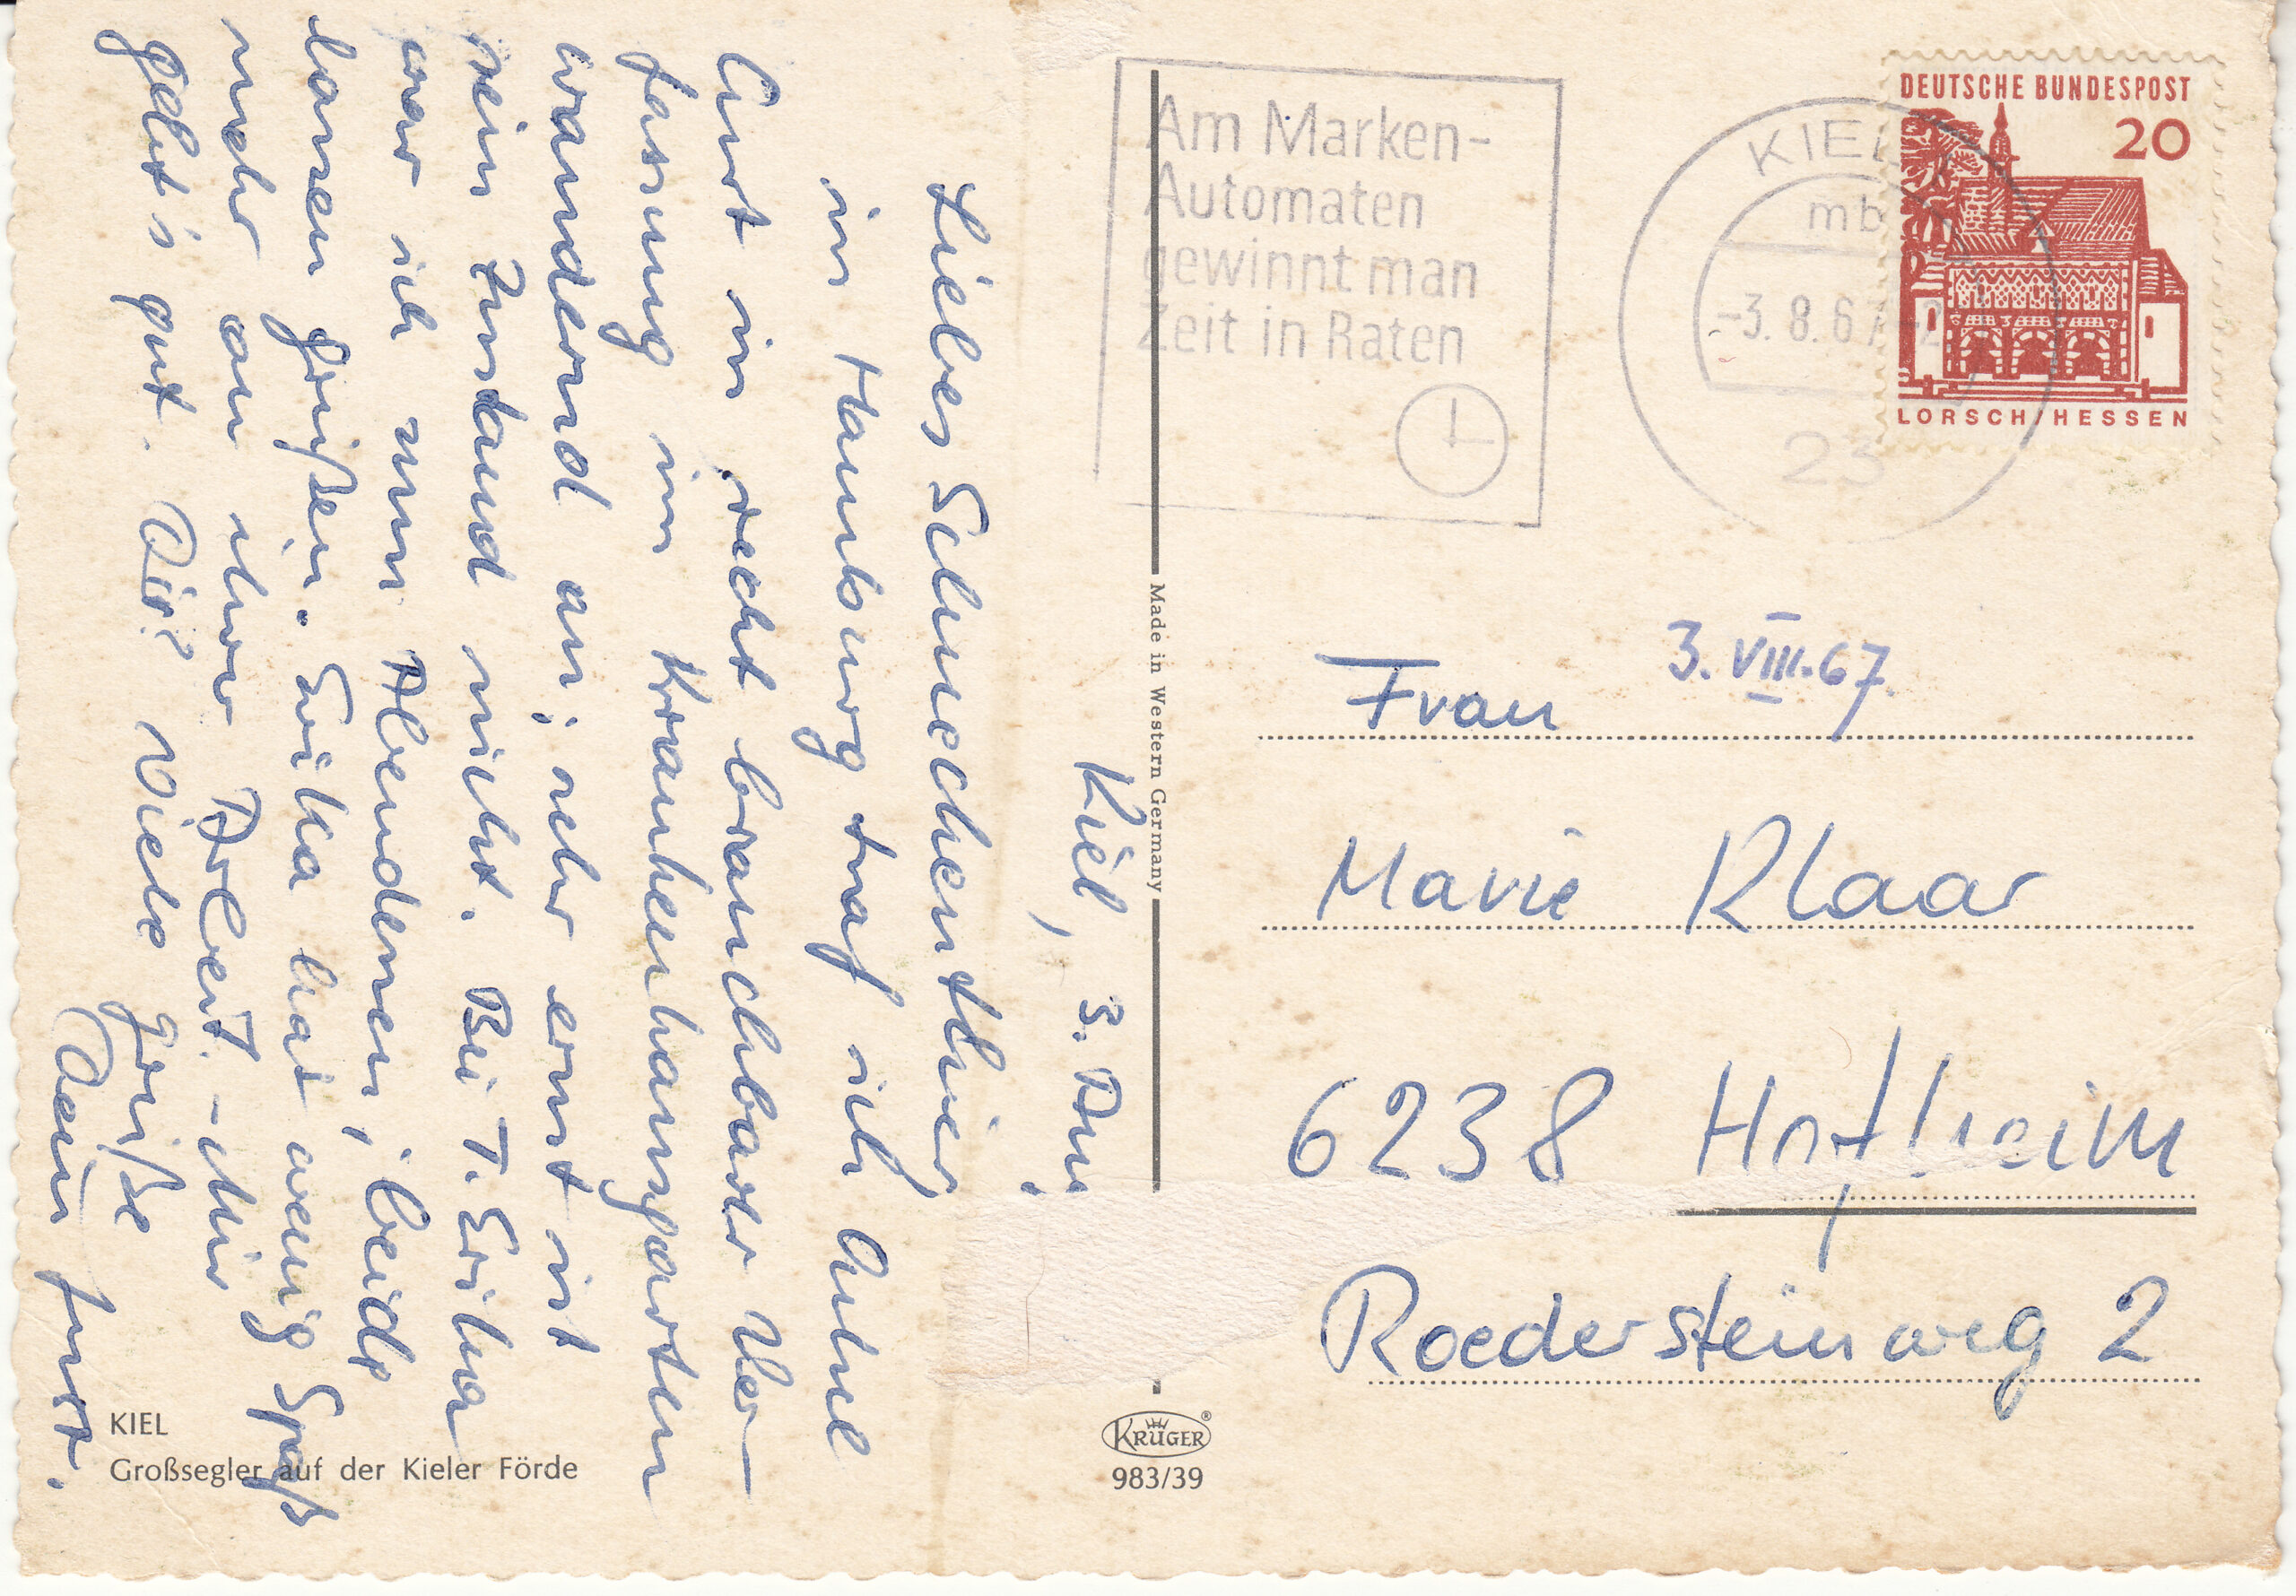 Kiel, 3. Au.
Liebes Schneckenthier,
in Hamburg traf ich Onkel
Curt in recht brauchbarer Ver-
fassung im Krankenhausgarten
wandernd an; sehr ernst ist
sein Zustand nicht. Bei T. Erika
war ich zum Abendessen; beide
lassen grüßen. Erika hat wenig Spaß
mehr an ihrer Arbeit. - Mir
geht's gut. Dir? Viele Grüße
Dein
KIEL
Großsegler auf der Kieler Förde
Made in Western Germany
KRÜGER
983/39
Am Marken-
Automaten
gewinnt man
Zeit in Raten
KIEL
mb
-3. 8. 67
23
DEUTSCHE BUNDESPOST
20
LORSCH/HESSEN
3. VIII. 67.
Frau
Marie Klaar
6238 Hofheim
Roedersteinweg 2